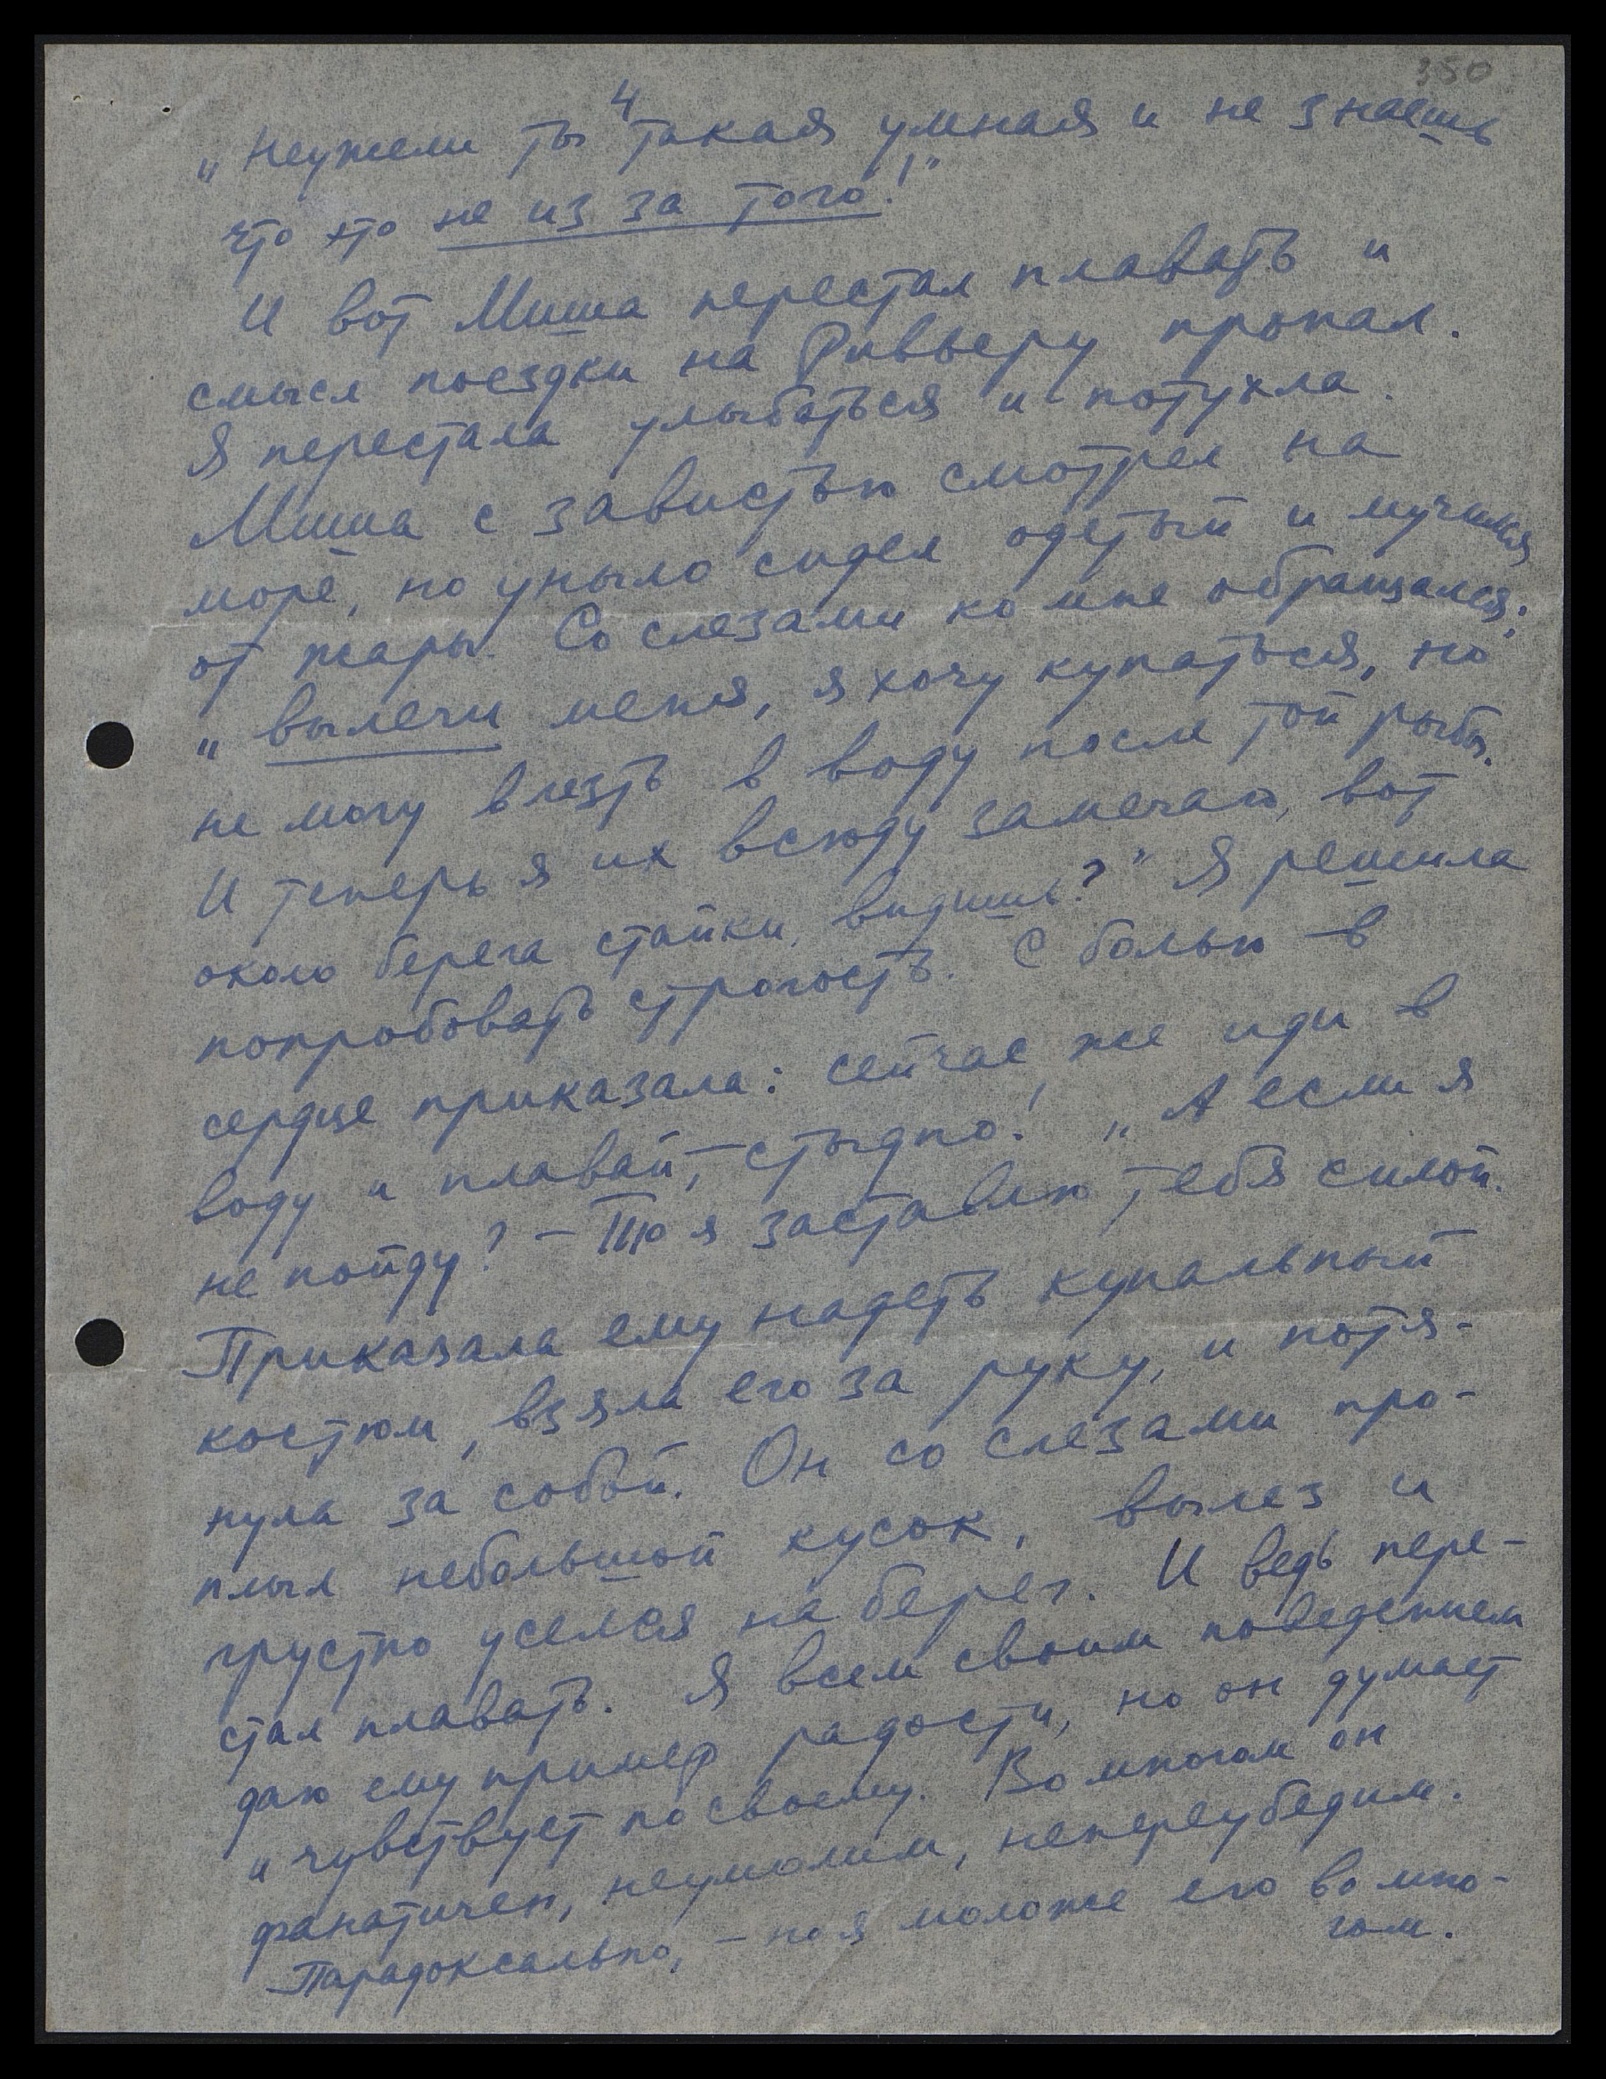 350
4
„Неужели ты такая умная и не знаешь
что это не из за того!"
И вот Миша перестал плавать и
смысл поездки на Ривьеру пропал.
Я перестала улыбаться и потухла.
Миша с завистью смотрел на
море, но уныло сидел одетый и мучился
от жары. Со слезами ко мне обращался:
„вылечи меня, я хочу купаться, но
не могу влезть в воду после той рыбы.
И теперь я их всюду замечаю, вот
около берега стайки, видишь?" Я решила
попробовать строгость. С болью в
сердце приказала: сейчас же иди в
воду и плавай, – стыдно! „А если я
не пойду? – То я заставлю тебя силой.
Приказала ему надеть купальный
костюм, взяла его за руку, и потя-
нула за собой. Он со слезами про-
плыл небольшой кусок, вылез и
грустно уселся на берег. И ведь пере-
стал плавать. Я всем своим поведением
даю ему пример радости, но он думает
и чувствует по своему. Во многом он
фанатичен, неумолим, непереубедим.
Парадоксально, – но я моложе его во мно-
гом.